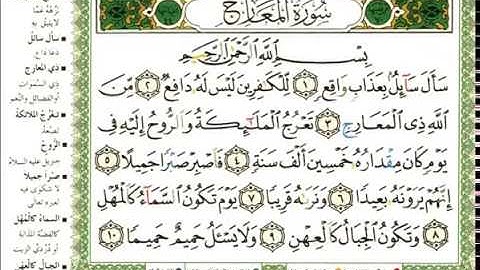 سُورَةُ الْمَعَارِجِ
بِسْمِ اللَّهِ الرَّحْمَٰنِ الرَّحِيمِ
سَأَلَ سَآئِلٌۢ بِعَذَابٍ وَاقِعٍ ١ لِّلْكَٰفِرِينَ لَيْسَ لَهُۥ دَافِعٌ ٢ مِّنَ
ٱللَّهِ ذِى ٱلْمَعَارِجِ ٣ تَعْرُجُ ٱلْمَلَٰٓئِكَةُ وَٱلرُّوحُ إِلَيْهِ فِى
يَوْمٍ كَانَ مِقْدَارُهُۥ خَمْسِينَ أَلْفَ سَنَةٍ ٤ فَٱصْبِرْ صَبْرًا جَمِيلًا ٥
إِنَّهُمْ يَرَوْنَهُۥ بَعِيدًا ٦ وَنَرَىٰهُ قَرِيبًا ٧ يَوْمَ تَكُونُ ٱلسَّمَآءُ كَٱلْمُهْلِ
٨ وَتَكُونُ ٱلْجِبَالُ كَٱلْعِهْنِ ٩ وَلَا يَسْـَٔلُ حَمِيمٌ حَمِيمًا ١٠
سأل سائلٌ
دعا داعٍ
ذي المعارج
ذي السموات
تعرج الملائكة
تصعد
الروح
جبريل عليه السلام
صبرًا جميلًا
السماء كالمهل
الجبال كالعهن